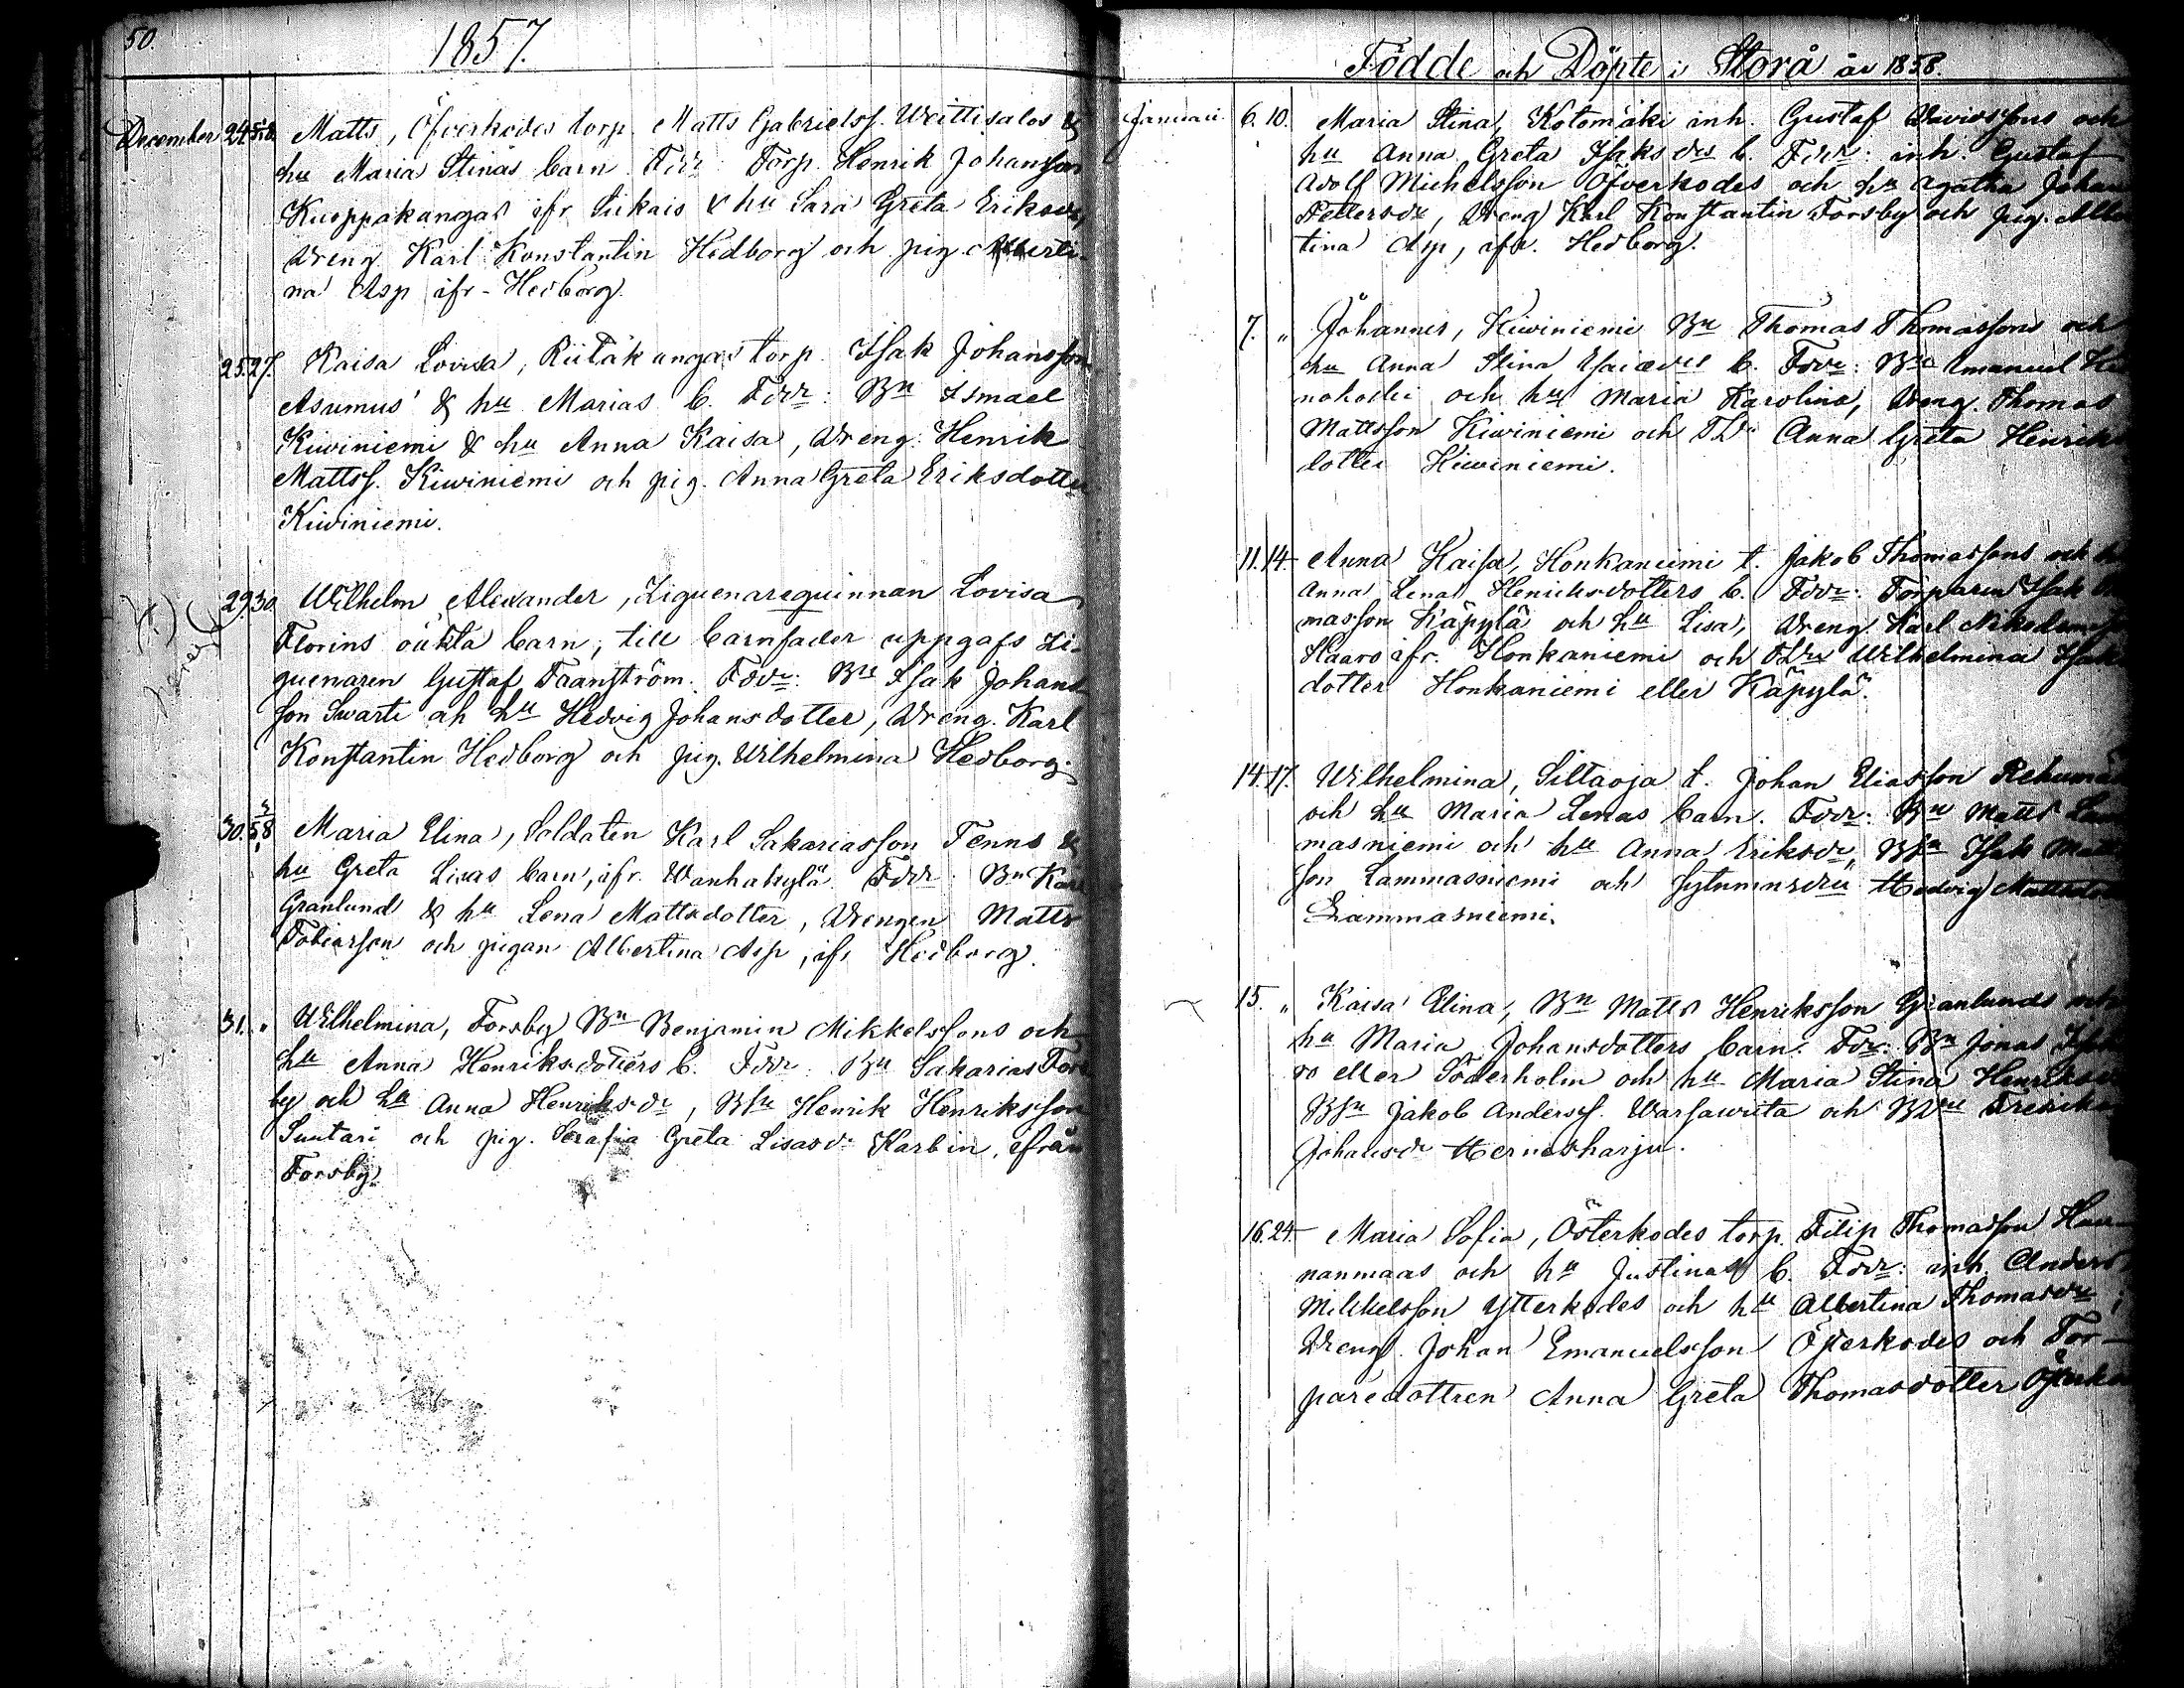 50.
1857.
December 24. Matts, Öfverkodes torp. Matts Gabrielss. Weittisalos &
hu Maria Stinas barn. Fddr: Torp. Henrik Johansson
Kuoppakangas ifr. Siikais & hu Sara Greta Eriksdr,
Dreng Karl Konstantin Hedborg och pig. Alberti-
na Asp ifr. Hedborg.
25. 27. Kaisa Lovisa, Riitakangas torp. Isak Johansson
Asumus' & hu Marias b. Fddr: Bn Ismael
Kiwiniemi & hu Anna Kaisa, Dreng. Henrik
Mattss. Kiwiniemi och pig. Anna Greta Eriksdotter
Kiwiniemi.
29. 30. Wilhelm Alexander, Ziguenareguinnan Lovisa
Florins oäkta barn; till barnfader uppgafs Zi-
guenaren Gustaf Franström. Fddr: Bn Isak Johans-
son Swarti och hu Hedvig Johansdotter, Dreng. Karl
Konstantin Hedborg och pig. Wilhelmina Hedborg.
30. Maria Elina, Soldaten Karl Sakariasson Tenns &
hu Greta Lisas barn, ifr. Wanhakylä. Fddr: Bn Karl
Granlund & hu Lena Mattsdotter, Drengen Matts
Tobiasson och pigan Albertina Asp, ifr Hedborg.
31. " Wilhelmina, Forsby Bn Benjamin Mikkelssons och
hu Anna Henriksdotters b. Fddr: Bn Sakarias Fors
by och hu Anna Henriksdr, Bsn Henrik Henriksson
Suutari och pig. Serafia Greta Lisasdr Karbin, ifrån
Forsby.
Födde och Döpte i Storå år 1858.
Januari 6. 10. Maria Stina, Kotomäki inh. Gustaf Davidssons och
hu Anna Greta Isaksdrs b. Fddr: inh. Gustaf
Adolf Michelsson Öfverkodes och hu Agatha Johan
Pettersdr, Dreng Karl Konstantin Forsby och pig. Alber
tina Asp, ifr. Hedborg.
7. " Johannes, Kiwiniemi Bn Thomas Thomassons och
hu Anna Stina b. Fddr: Bn Emanuel
och hu Maria Karolina, Dreng. Thomas
Mattsson Kiwiniemi och Anna Greta Henriks
dotter Kiwiniemi.
11. 14. Anna Kaisa, Honkaniemi t. Jakob Thomassons och hu
Anna Lena Henriksdotters b. Fddr: Torparen Isak
masson Käpylä och hu Lisa, Dreng. Karl
Haaro ifr. Honkaniemi och Wilhelmina Isaks
dotter Honkaniemi eller Käpylä.
14. 17. Wilhelmina, Siltaoja t. Johan Eliasson
och hu Maria Lenas barn. Fddr: Bn Matts Lam
masniemi och hu Anna Eriksdr, Bsn Isak Matts
son Lammasniemi och Hedvig Mattsdotter
Lammasniemi.
15. " Kaisa Elina, Bn Matts Henriksson Granlunds och
hu Maria Johansdotters barn. Fddr: Bn Jonas
ro eller Söderholm och hu Maria Stina Henriksdr
Bsn Jakob Anderss. Warsawiita och Bdn Fredrika
Johansdr Herneskarju.
16. 24. Maria Sofia, Österkodes torp. Filip Thomasson
nanmaas och hu Justinas b. Fddr: inh. Anders
Mikkelsson Ytterkodes och hu Albertina Thomasdr;
Dreng. Johan Emanuelsson Öfverkodes och Tor-
paredottren Anna Greta Thomasdotter